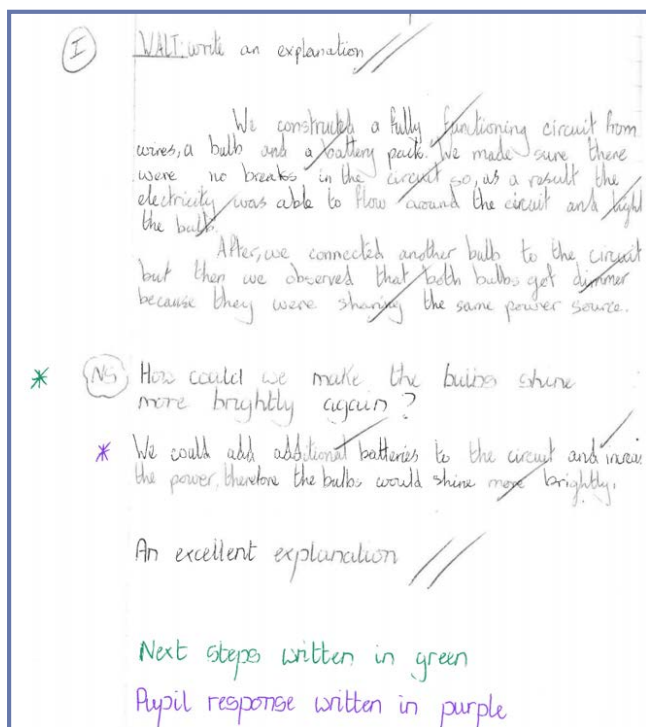 I
WALT: write an explanation
We constructed a fully functioning circuit from
wires, a bulb and a battery pack. We made sure there
were no breaks in the circuit so, as a result the
electricity was able to flow around the circuit and light
the bulb.
After, we connected another bulb to the circuit
but then we observed that both bulbs got dimmer
because they were sharing the same power source.
* NS How could we make the bulbs shine
more brightly again?
* We could add additional batteries to the circuit and increas
the power, therefore the bulbs would shine more brightly.
An excellent explanation
Next steps written in green
Pupil response written in purple